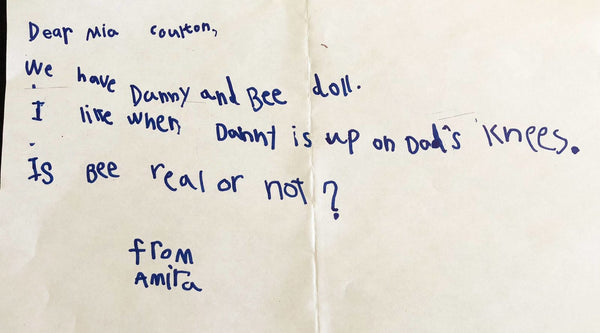 Dear Mia Coulton,
We have Danny and Bee doll.
I like when Danny is up on Dad's knees.
Is Bee real or not?
from
Amira